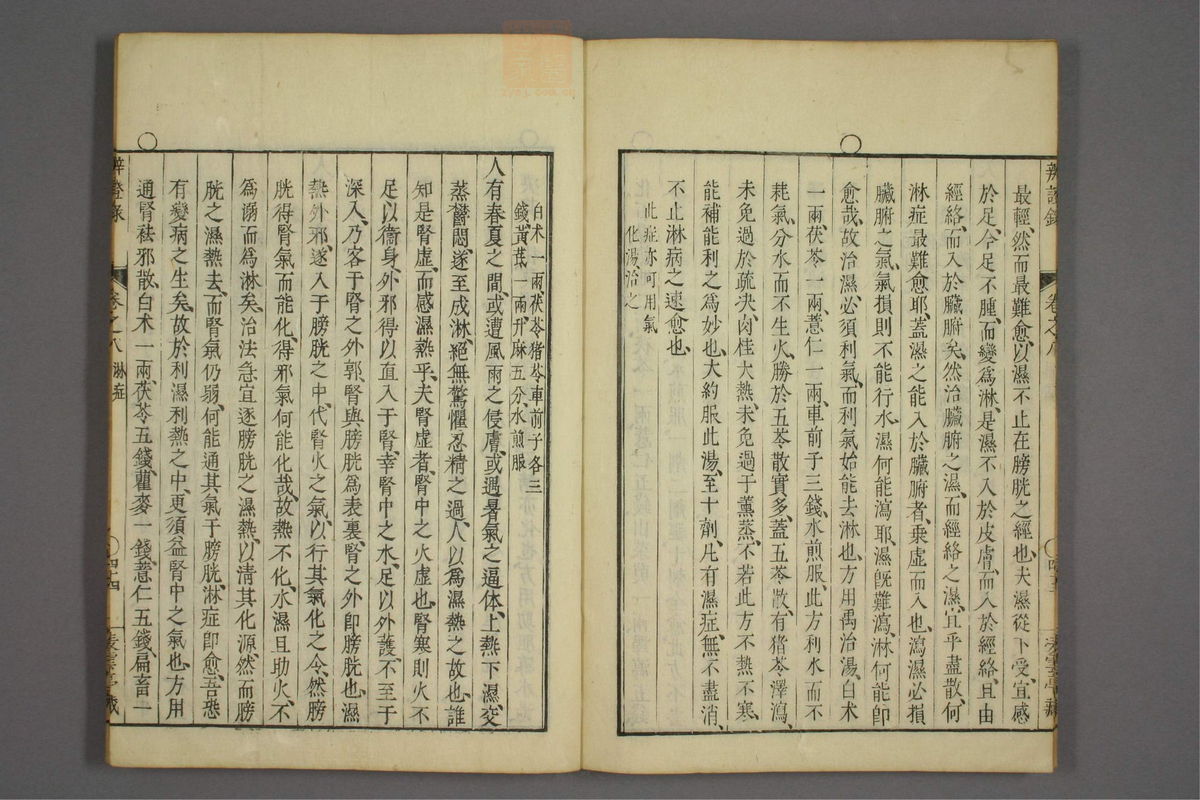 最輕然而最難愈以濕不止在膀胱之經也夫濕從下受宜感
於足今足不腫而變爲淋是濕不入於皮膚而入於經絡且由
經絡而入於臟腑矣然治臟腑之濕而經絡之濕宜乎盡散何
淋症最難愈耶蓋濕之能入於臟腑者乗虛而入也瀉濕必損
臟腑之氣氣損則不能行水濕何能瀉耶濕旣難瀉淋何能卽
愈哉故治濕必須利氣而利氣始能去淋也方用禹治湯白术
一兩茯苓一兩薏仁一兩車前子三錢水煎服此方利水而不
耗氣分水而不生火勝於五苓散實多蓋五苓散有猪苓澤瀉
未免過於疏决肉桂大熱未免過于薰蒸不若此方不熱不寒
能補能利之爲妙也大約服此湯至十劑凡有濕症無不盡消
不止淋病之速愈也
此症亦可用氣
化湯治之
白术一兩茯苓猪苓車前子各三
錢黃芪一兩升麻五分水煎服
人有春夏之間或遭風雨之侵膚或遇暑氣之逼体上熱下濕交
蒸鬱悶遂至成淋絕無驚懼忍精之過人以爲濕熱之故也誰
知是腎虛而感濕熱乎夫腎虛者腎中之火虛也腎寒則火不
足以衛身外邪得以直入于腎幸腎中之水足以外護不至于
深入乃客于腎之外郭腎與膀胱爲表裏腎之外卽膀胱也濕
熱外邪遂入于膀胱之中代腎火之氣以行其氣化之令然膀
胱得腎氣而能化得邪氣何能化哉故熱不化水濕且助火不
爲溺而爲淋矣治法急宜逐膀胱之濕熱以淸其化源然而膀
胱之濕熱去而腎氣仍弱何能通其氣于膀胱淋症卽愈吾恐
有變病之生矣故於利濕利熱之中更須益腎中之氣也方用
通腎祛邪散白术一兩茯苓五錢瞿麥一錢薏仁五錢扁畜一
辨證錄
卷之八
淋症
四十四